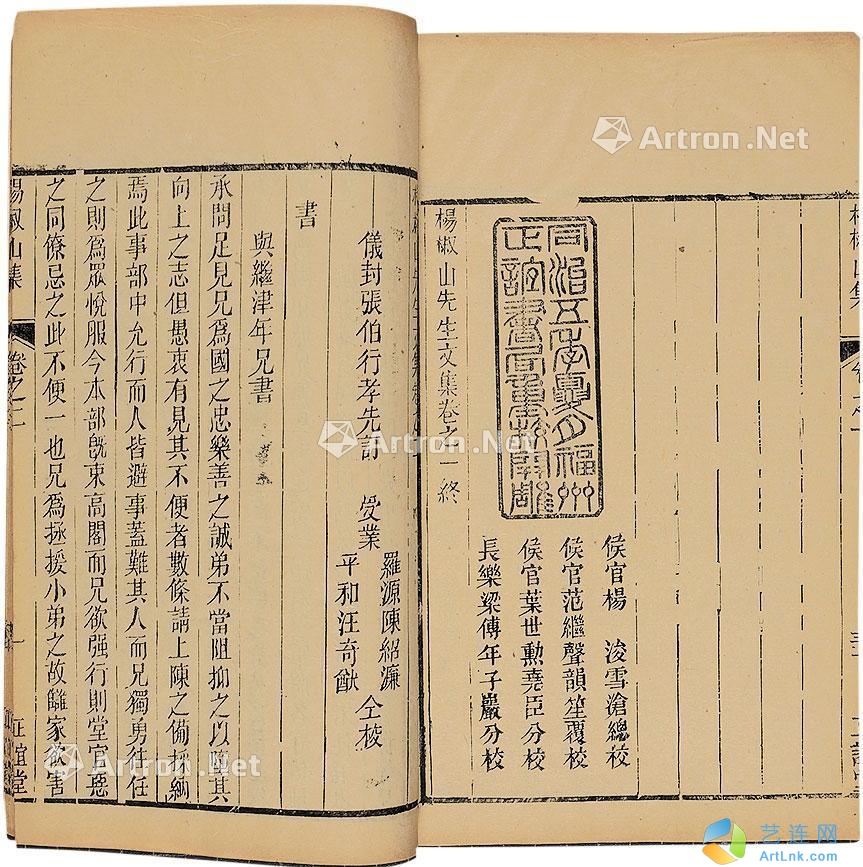 楊椒山先生文集卷之一終
同治五年夏月福州
正誼書局重校開雕
侯官楊 浚雪滄總校
侯官范繼聲韻笙覆校
侯官葉世勳堯臣分校
長樂梁傅年子嚴分校
儀封張伯行孝先訂 受業
羅源陳紹濂
平和汪奇猷
仝校
書
與繼津年兄書
承問足見兄爲國之忠樂善之誠弟不當阻抑之以墮其
向上之志但愚衷有見其不便者數條請上陳之備採納
焉此事部中允行而人皆避事蓋難其人而兄獨勇往任
之則爲眾悅服今本部旣束高閣而兄欲强行則堂官惡
之同僚忌之此不便一也兄爲拯援小弟之故離家欲害
楊椒山集
卷之二
一
正誼堂
Artron.Net
Artron.Net
Artron.Net
Artron.Net
艺连网
ArtLnk.com